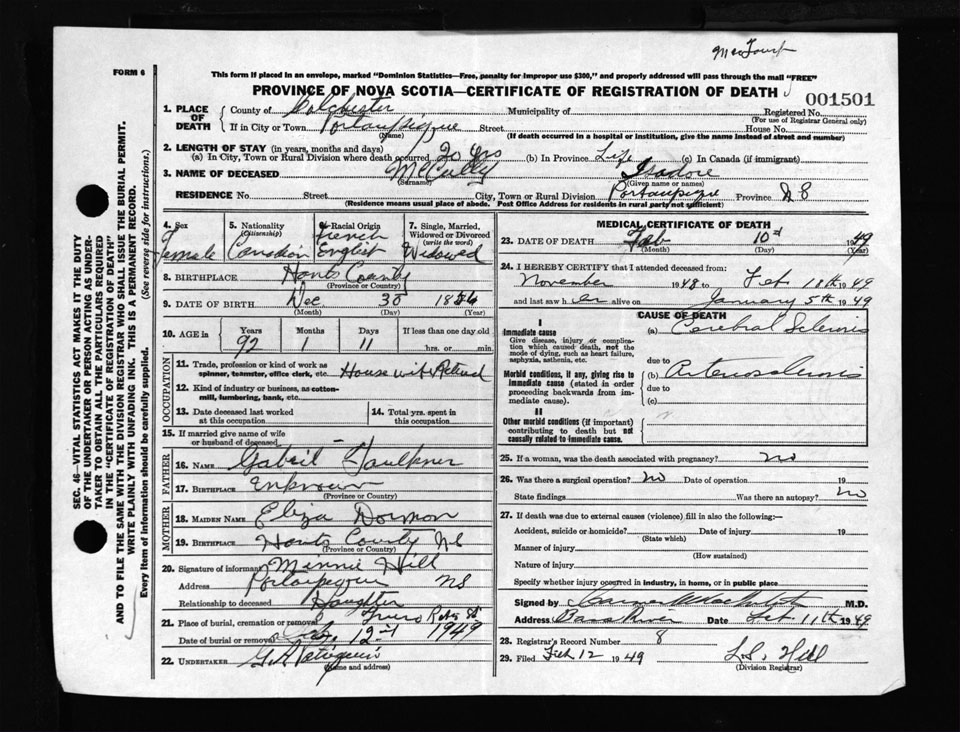 FORM 6
This form if placed in an envelope, marked "Dominion Statistics—Free, penalty for improper use $300," and properly addressed will pass through the mail "FREE"
PROVINCE OF NOVA SCOTIA—CERTIFICATE OF REGISTRATION OF DEATH
001501
1. PLACE OF DEATH County of Colchester Municipality of Registered No.
(For use of Registrar General only)
If in City or Town Portaupique Street House No.
(Name) (If death occurred in a hospital or institution, give the name instead of street and number)
2. LENGTH OF STAY (in years, months and days)
(a) In City, Town or Rural Division where death occurred 20 yrs (b) In Province Life (c) In Canada (if immigrant)
3. NAME OF DECEASED McCully Isadore
(Surname) (Given name or names)
RESIDENCE No. Street City, Town or Rural Division Portaupique Province N S
(Residence means usual place of abode. Post Office Address for residents in rural parts not sufficient)
4. Sex Female
5. Nationality (Citizenship) Canadian
6. Racial Origin French English
7. Single, Married, Widowed or Divorced (write the word) Widowed
8. BIRTHPLACE Hants County
(Province or Country)
9. DATE OF BIRTH Dec 30 1856
(Month) (Day) (Year)
10. AGE in Years Months Days If less than one day old
92 1 11 hrs. or min.
OCCUPATION
11. Trade, profession or kind of work as spinner, teamster, office clerk, etc. House wife Retired
12. Kind of industry or business, as cotton-mill, lumbering, bank, etc.
13. Date deceased last worked at this occupation
14. Total yrs. spent in this occupation
15. If married give name of wife or husband of deceased
FATHER
16. NAME Gabriel Faulkner
17. BIRTHPLACE Unknown
(Province or Country)
MOTHER
18. MAIDEN NAME Eliza Dormon
19. BIRTHPLACE Hants County N S
(Province or Country)
20. Signature of informant Minnie Hill
Address Portaupique NS
Relationship to deceased Daughter
21. Place of burial, cremation or removal Truro
Date of burial or removal Feb. 12 1949
22. UNDERTAKER
(Name and address)
MEDICAL CERTIFICATE OF DEATH
23. DATE OF DEATH Feb 10 1949
(Month) (Day) (Year)
24. I HEREBY CERTIFY that I attended deceased from:
November 1948 to Feb 1949
and last saw her alive on January 5th 1949
CAUSE OF DEATH
I
Immediate cause
Give disease, injury or complication which caused death, not the mode of dying, such as heart failure, asphyxia, asthenia, etc.
(a) Cerebral Sclerosis
due to
Morbid conditions, if any, giving rise to immediate cause (stated in order proceeding backwards from immediate cause).
(b) Arteriosclerosis
due to
(c)
II
Other morbid conditions (if important) contributing to death but not causally related to immediate cause.
25. If a woman, was the death associated with pregnancy? no
26. Was there a surgical operation? no Date of operation 19
State findings Was there an autopsy? no
27. If death was due to external causes (violence) fill in also the following:—
Accident, suicide or homicide? Date of injury 19
(State which)
Manner of injury
(How sustained)
Nature of injury
Specify whether injury occurred in industry, in home, or in public place
Signed by M.D.
Address Bass River Date Feb 11th 1949
28. Registrar's Record Number 8
29. Filed Feb 12 1949 L.S. Hill
(Division Registrar)
SEC. 46—VITAL STATISTICS ACT MAKES IT THE DUTY
OF THE UNDERTAKER OR PERSON ACTING AS UNDER-
TAKER TO OBTAIN ALL THE PARTICULARS REQUIRED
IN THE "CERTIFICATE OF REGISTRATION OF DEATH"
AND TO FILE THE SAME WITH THE DIVISION REGISTRAR WHO SHALL ISSUE THE BURIAL PERMIT.
WRITE PLAINLY WITH UNFADING INK. THIS IS A PERMANENT RECORD.
Every item of information should be carefully supplied. (See reverse side for instructions.)